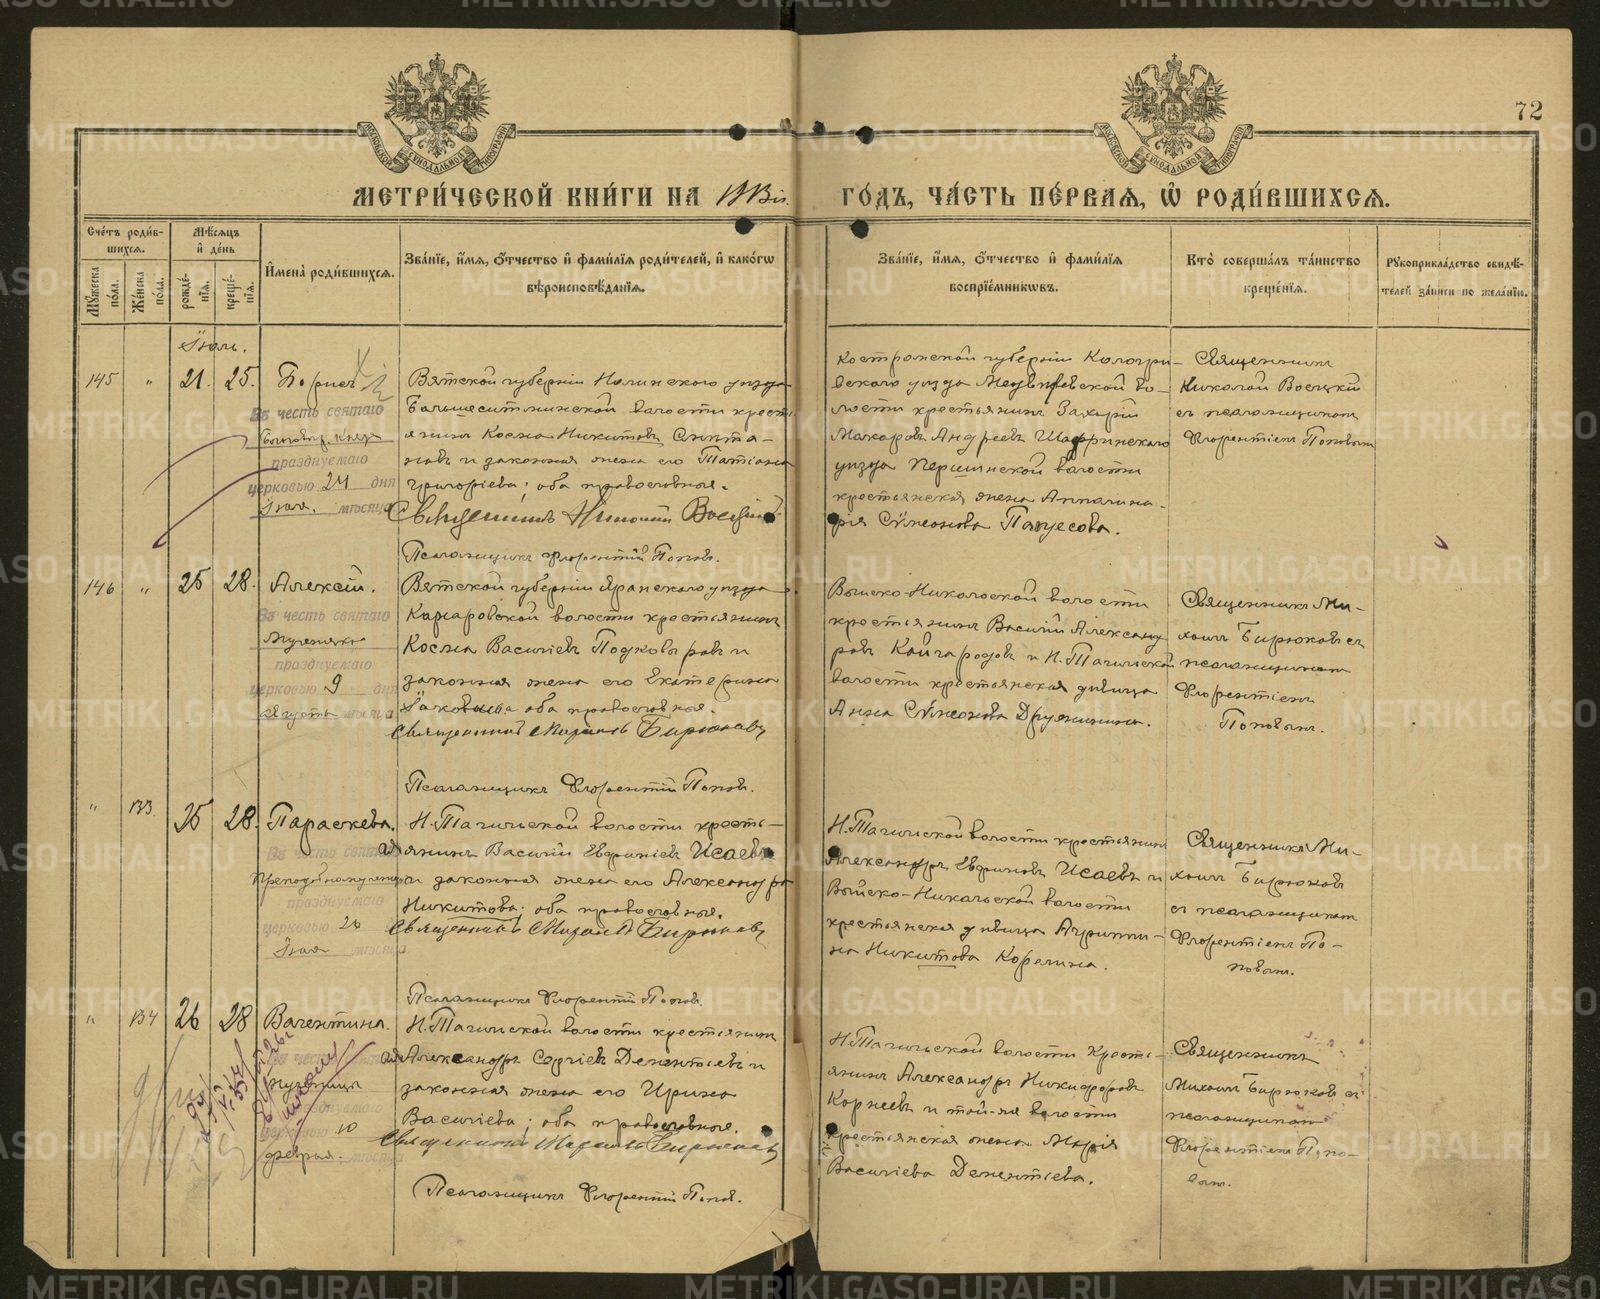 72
МЕТРИ́ЧЕСКОЙ КНИ́ГИ НА 1913й. ГО́ДЪ, ЧА́СТЬ ПЕ́РВАѦ, Ѡ҆ РОДИ́ВШИХСѦ.
Сче́тъ роди́в-
шихсѧ.
Мѣ́сѧцъ
и҆ де́нь
Мꙋ́жеска по́ла.
Же́нска по́ла.
рожде́-
нїѧ.
креще́-
нїѧ.
И҆мена̀ роди́вшихсѧ.
Зва́нїе, и҆́мѧ, ѻ҆́тчество и҆ фами́лїѧ роди́телей, и҆ како́гѡ
вѣроисповѣ́данїѧ.
Зва́нїе, и҆́мѧ, ѻ҆́тчество и҆ фами́лїѧ
воспрїе́мникѡвъ.
Кто̀ соверша́лъ та́инство
креще́нїѧ.
Рꙋкоприкла́дство свидѣ́-
телей за́писи по жела́нїю.
Іюль.
145 " 21. 25. Борисъ
Въ честь святаго
Благовѣр. Князя
празднуемаго
церковью 24 дня
Іюля. мѣсяца
Вятской губерніи Нолинскаго уѣзда
Большеситминской волости кресть-
янинъ Косма Никитовъ
и законная жена его Татіана
Григоріева; оба православные.
Священникъ Николай
Псаломщикъ Флорентій Поповъ.
Костромской губерніи Кологри-
вскаго уѣзда во-
лости крестьянинъ Захарій
Макаровъ Андреевъ Шадринскаго
уѣзда Першинской волости
крестьянская жена Аполлина-
рія Сѵмеонова
Священникъ
Николай
съ псаломщикомъ
Флорентіемъ Поповымъ
146 " 25 28. Алексій.
Въ честь святаго
Мученика
празднуемаго
церковью 9 дня
Августа мѣсяца
Вятской губерніи Яранскаго уѣзда
волости крестьянинъ
Косма Василіевъ и
законная жена его Екатерина
Іаковлева оба православные.
Священникъ Михаилъ Бирюковъ
Псаломщикъ Флорентій Поповъ.
Выйско-Николаевской волости
крестьянинъ Василій Александ
ровъ Кайгородовъ и Н.Тагильской
волости крестьянская дѣвица
Анна Сѵмеонова Дружинина.
Священникъ Ми-
хаилъ Бирюковъ съ
псаломщикомъ
Флорентіемъ
Поповымъ.
" 133 25 28. Параскева.
Въ честь святой
Преподобномученицы
празднуемаго
церковью 26
Іюля мѣсяца
Н.Тагильской волости кресть-
янинъ Василій Исаевъ
и законная жена его Александра
Никитова; оба православные.
Священникъ Михаилъ Бирюковъ
Псаломщикъ Флорентій Поповъ.
Н.Тагильской волости крестьянинъ
Александръ Исаевъ и
Выйско-Никольской волости
крестьянская дѣвица Агриппи-
на Никитова Корелина.
Священникъ Ми-
хаилъ Бирюковъ
съ псаломщикомъ
Флорентіемъ По-
повымъ.
" 134 26 28 Валентина.
Въ честь
мученицы
празднуемаго
церковью 10
Февраля. мѣсяца
Н.Тагильской волости крестьянинъ
Александръ Сергіевъ Дементьевъ и
законная жена его Ирина
Василіева; оба православные.
Священникъ Михаилъ Бирюковъ
Псаломщикъ Флорентій Поповъ.
Н.Тагильской волости кресть-
янинъ Александръ Никифоровъ
Корнеевъ и той-же волости
крестьянская жена Марія
Василіева Дементіева.
Священникъ
Михаилъ Бирюковъ съ
псаломщикомъ
Флорентіемъ Попо-
вымъ.
METRIKI.GASO-URAL.RU